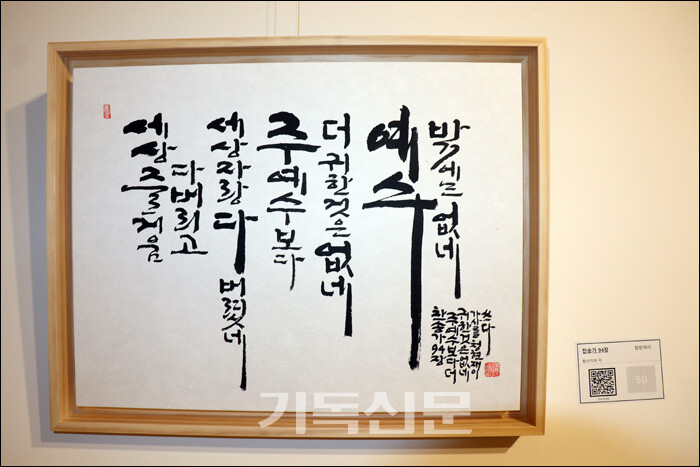 세상 즐거움
다 버리고
세상 자랑 다 버렸네
주 예수보다
더 귀한 것은 없네
예수
밖에는 없네
찬송가 94장
주 예수보다 더
귀한 것은 없네
가사를 청현재이
쓰다
찬송가 94장
청현재이
50
기독신문